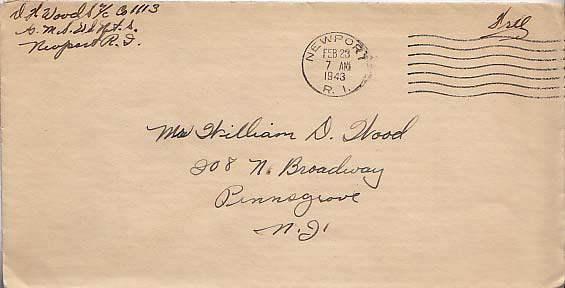 D H Wood S/c Co 1113
G. M. S. U.S.N.T.S.
Newport R.I.
Free
NEWPORT
FEB 23
7 AM
1943
R. I.
Mrs William D. Wood
208 N. Broadway
Pennsgrove
N.J.